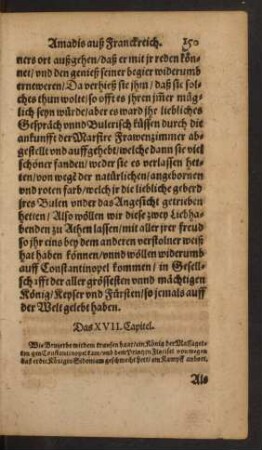 Amadis auß Franckreich. 150
ners ort außgehen/ daß er mit jr reden kön-
net/ vnd den genieß seiner begier widerumb
ernewern/ Da verhieß sie jhm/ daß sie sol-
ches thun wolte/ so offt es jhren jm̃er müg-
lich seyn würde/ aber es ward jhr liebliches
Gespräch vnnd Bulerisch küssen durch die
ankunfft der Marfire Frawenzimmer ab-
gestellt vnd auffgehebt/ welche dann sie viel
schöner fanden/ weder sie es verlassen het-
ten/ von wegẽ der natürlichen/ angebornen
vnd roten farb/ welch jr die liebliche geberd
jres Bulen vnder das Angesicht getrieben
hetten/ Also wöllen wir diese zwey Liebha-
benden zu Athem lassen/ mit aller jrer freud
so jhr eins bey dem anderen verstolner weiß
hat haben können/ vnnd wöllen widerumb
auff Constantinopel kommen/ in Gesell-
schafft der aller grössesten vnnd mächtigen
König/ Keyser vnd Fürsten/ so jemals auff
der Welt gelebt haben.
Das XVII. Capitel.
Wie Bruzerbo mit dem krausen haar/ ein König der Massagete-
ten gen Constantinopel kam/ vnd dem Printzen Florisel von wegen
daß er die Königin Sidoniam geschwecht hett/ ein Kampff anbott.
Als